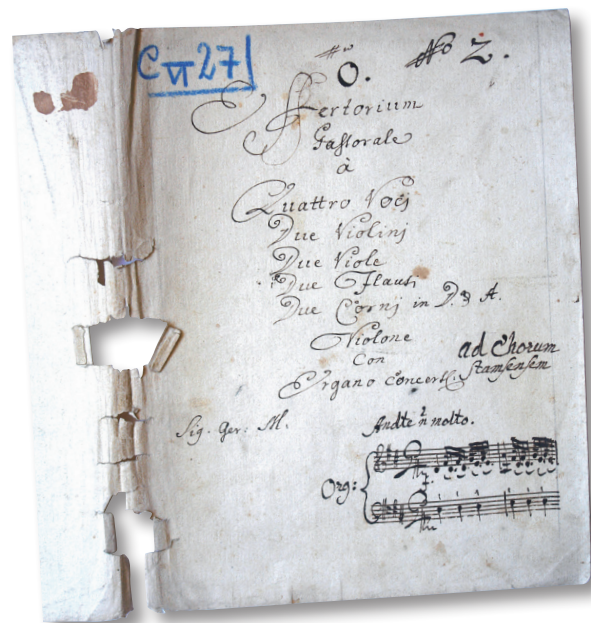 C VI 27
O. No 2.
Offertorium
Pastorale
à
Quattro Voci
Due Violini
Due Viole
Due Flauti
Due Corni in D. & A.
Violone
Con
Organo Concert:
ad Chorum
Stamsensem
Sig. Ger: M.
Andte molto.
Org: